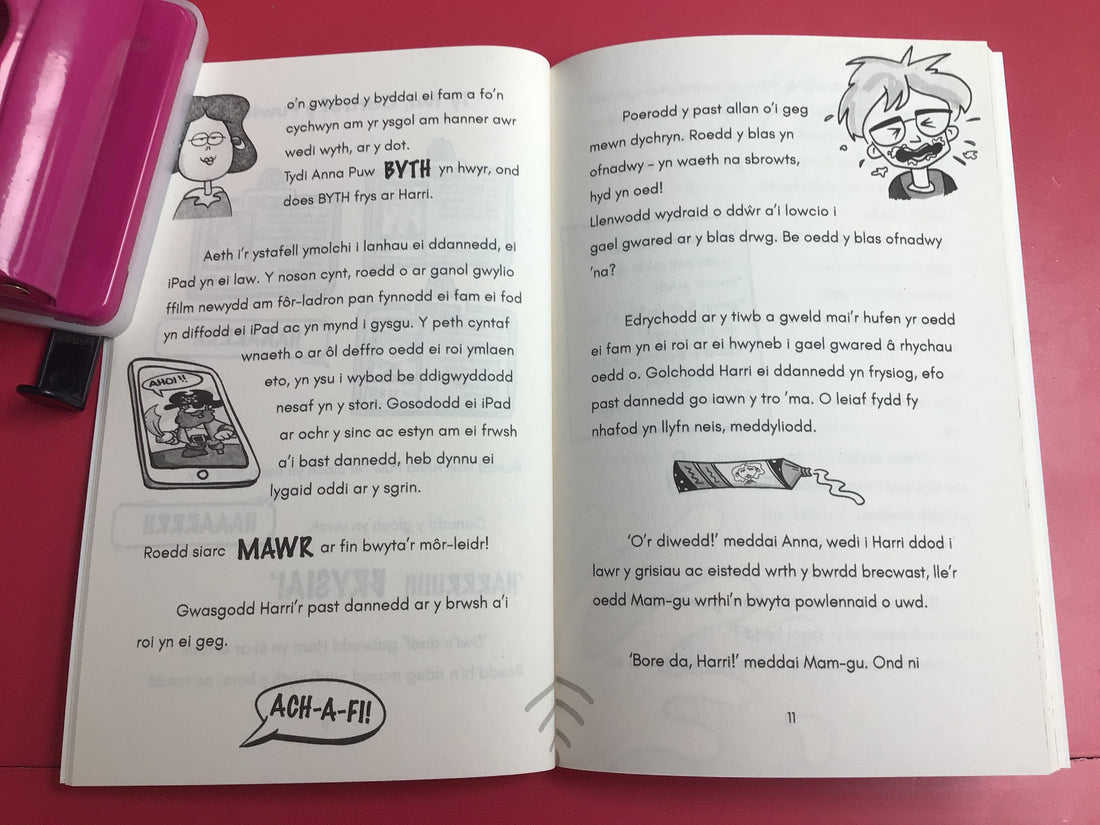 o'n gwybod y byddai ei fam a fo'n
cychwyn am yr ysgol am hanner awr
wedi wyth, ar y dot.
Tydi Anna Puw BYTH yn hwyr, ond
does BYTH frys ar Harri.
Aeth i'r ystafell ymolchi i lanhau ei ddannedd, ei
iPad yn ei law. Y noson cynt, roedd o ar ganol gwylio
ffilm newydd am fôr-ladron pan fynnodd ei fam ei fod
yn diffodd ei iPad ac yn mynd i gysgu. Y peth cyntaf
wnaeth o ar ôl deffro oedd ei roi ymlaen
eto, yn ysu i wybod be ddigwyddodd
nesaf yn y stori. Gosododd ei iPad
ar ochr y sinc ac estyn am ei frwsh
a'i bast dannedd, heb dynnu ei
lygaid oddi ar y sgrin.
AHOI!!
Roedd siarc MAWR ar fin bwyta'r môr-leidr!
Gwasgodd Harri'r past dannedd ar y brwsh a'i
roi yn ei geg.
ACH-A-FI!
Poerodd y past allan o'i geg
mewn dychryn. Roedd y blas yn
ofnadwy – yn waeth na sbrowts,
hyd yn oed!
Llenwodd wydraid o ddŵr a'i lowcio i
gael gwared ar y blas drwg. Be oedd y blas ofnadwy
'na?
Edrychodd ar y tiwb a gweld mai'r hufen yr oedd
ei fam yn ei roi ar ei hwyneb i gael gwared â rhychau
oedd o. Golchodd Harri ei ddannedd yn frysiog, efo
past dannedd go iawn y tro 'ma. O leiaf fydd fy
nhafod yn llyfn neis, meddyliodd.
'O'r diwedd!' meddai Anna, wedi i Harri ddod i
lawr y grisiau ac eistedd wrth y bwrdd brecwast, lle'r
oedd Mam-gu wrthi'n bwyta powlennaid o uwd.
'Bore da, Harri!' meddai Mam-gu. Ond ni
11